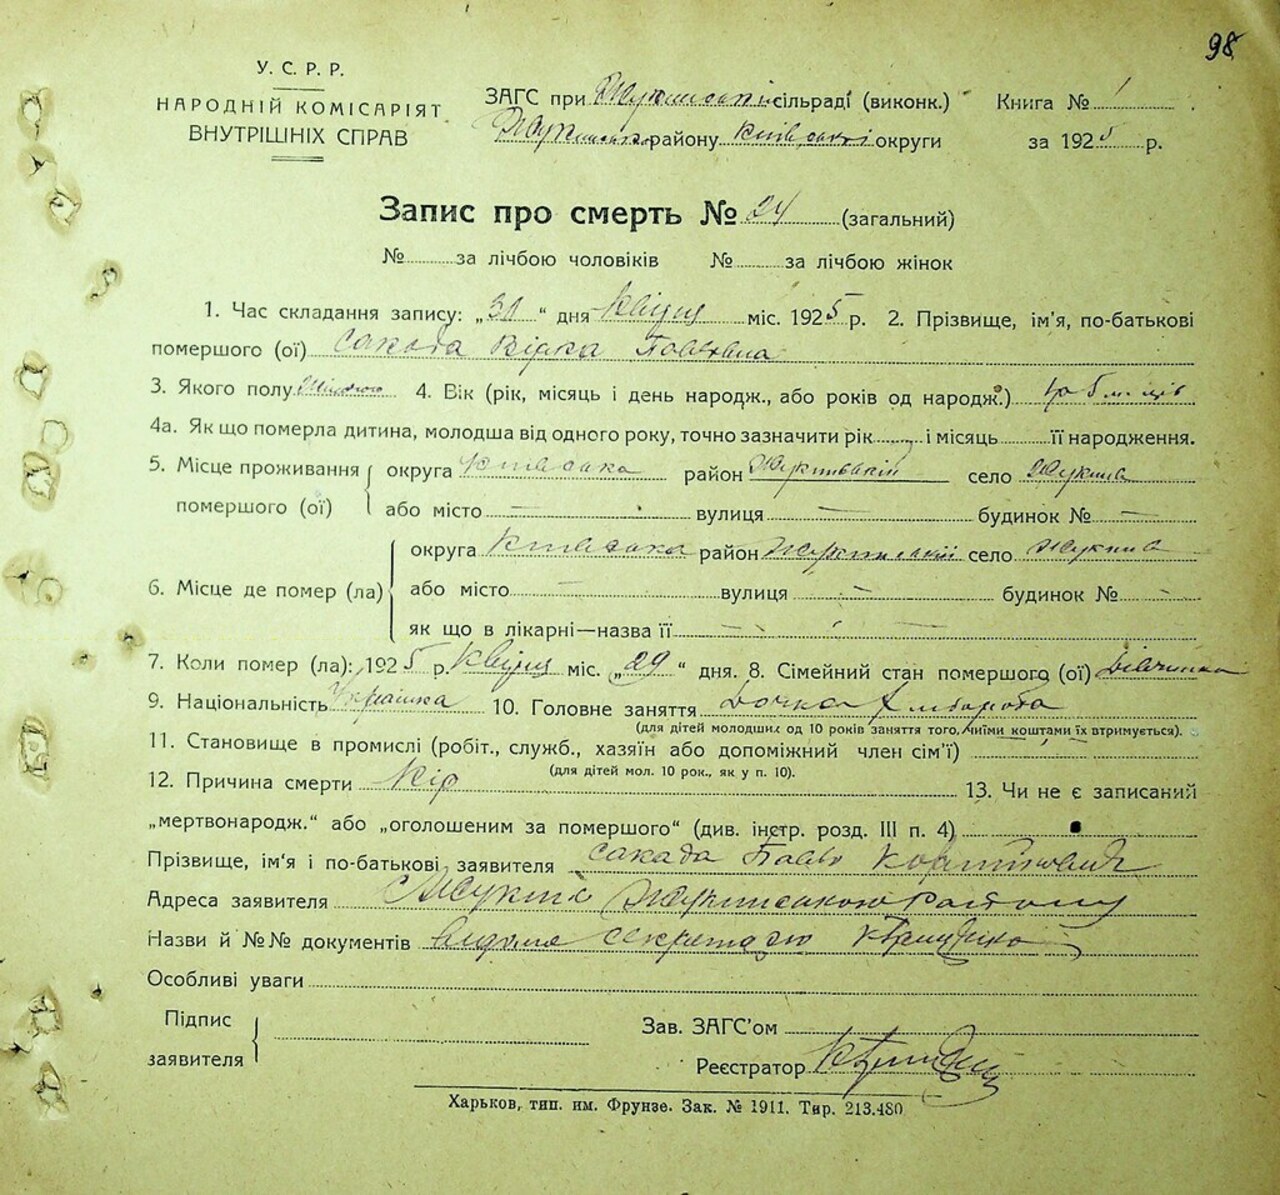 98
У. С. Р. Р.
НАРОДНІЙ КОМІСАРІЯТ
ВНУТРІШНІХ СПРАВ
ЗАГС при сільраді (виконк.) Книга № 1
району округи за 1925 р.
Запис про смерть № 24 (загальний)
№ за лічбою чоловіків № за лічбою жінок
1. Час складання запису: „31“ дня Квітня міс. 1925 р. 2. Прізвище, ім'я, по-батькові
помершого (ої) Сакада Вірка Павловна
3. Якого полу 4. Вік (рік, місяць і день народж., або років од народж.)
4а. Як що померла дитина, молодша від одного року, точно зазначити рік і місяць її народження.
5. Місце проживання округа Київська район село Жукина
помершого (ої) або місто — вулиця — будинок № —
округа Київська район село Жукина
6. Місце де помер (ла) або місто — вулиця — будинок № —
як що в лікарні—назва її — — —
7. Коли помер (ла): 1925 р. Квітня міс. „29“ дня. 8. Сімейний стан помершого (ої) Дівчинка
9. Національність Українка 10. Головне заняття Дочка хлібороба
(для дітей молодших од 10 років заняття того, чиїми коштами їх втримується).
11. Становище в промислі (робіт., служб., хазяїн або допоміжний член сім'ї)
(для дітей мол. 10 рок., як у п. 10).
12. Причина смерти Кір 13. Чи не є записаний
„мертвонародж.“ або „оголошеним за помершого“ (див. інстр. розд. III п. 4)
Прізвище, ім'я і по-батькові заявителя Сакада Павло
Адреса заявителя району
Назви й №№ документів секретарю
Особливі уваги
Підпис
заявителя
Зав. ЗАГС'ом
Реєстратор
Харьков, тип. им. Фрунзе. Зак. № 1911. Тир. 213.480